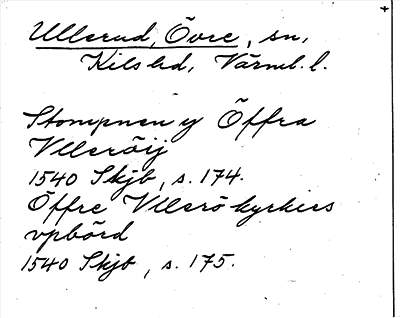 Ullerud, Övre, sn,
Kils hd, Värml. l.
Stompnen y Öffra
Vlleröij
1540 Skjb, s. 174.
Öffre Vllerö kyrkiers
vpbörd
1540 Skjb, s. 175.